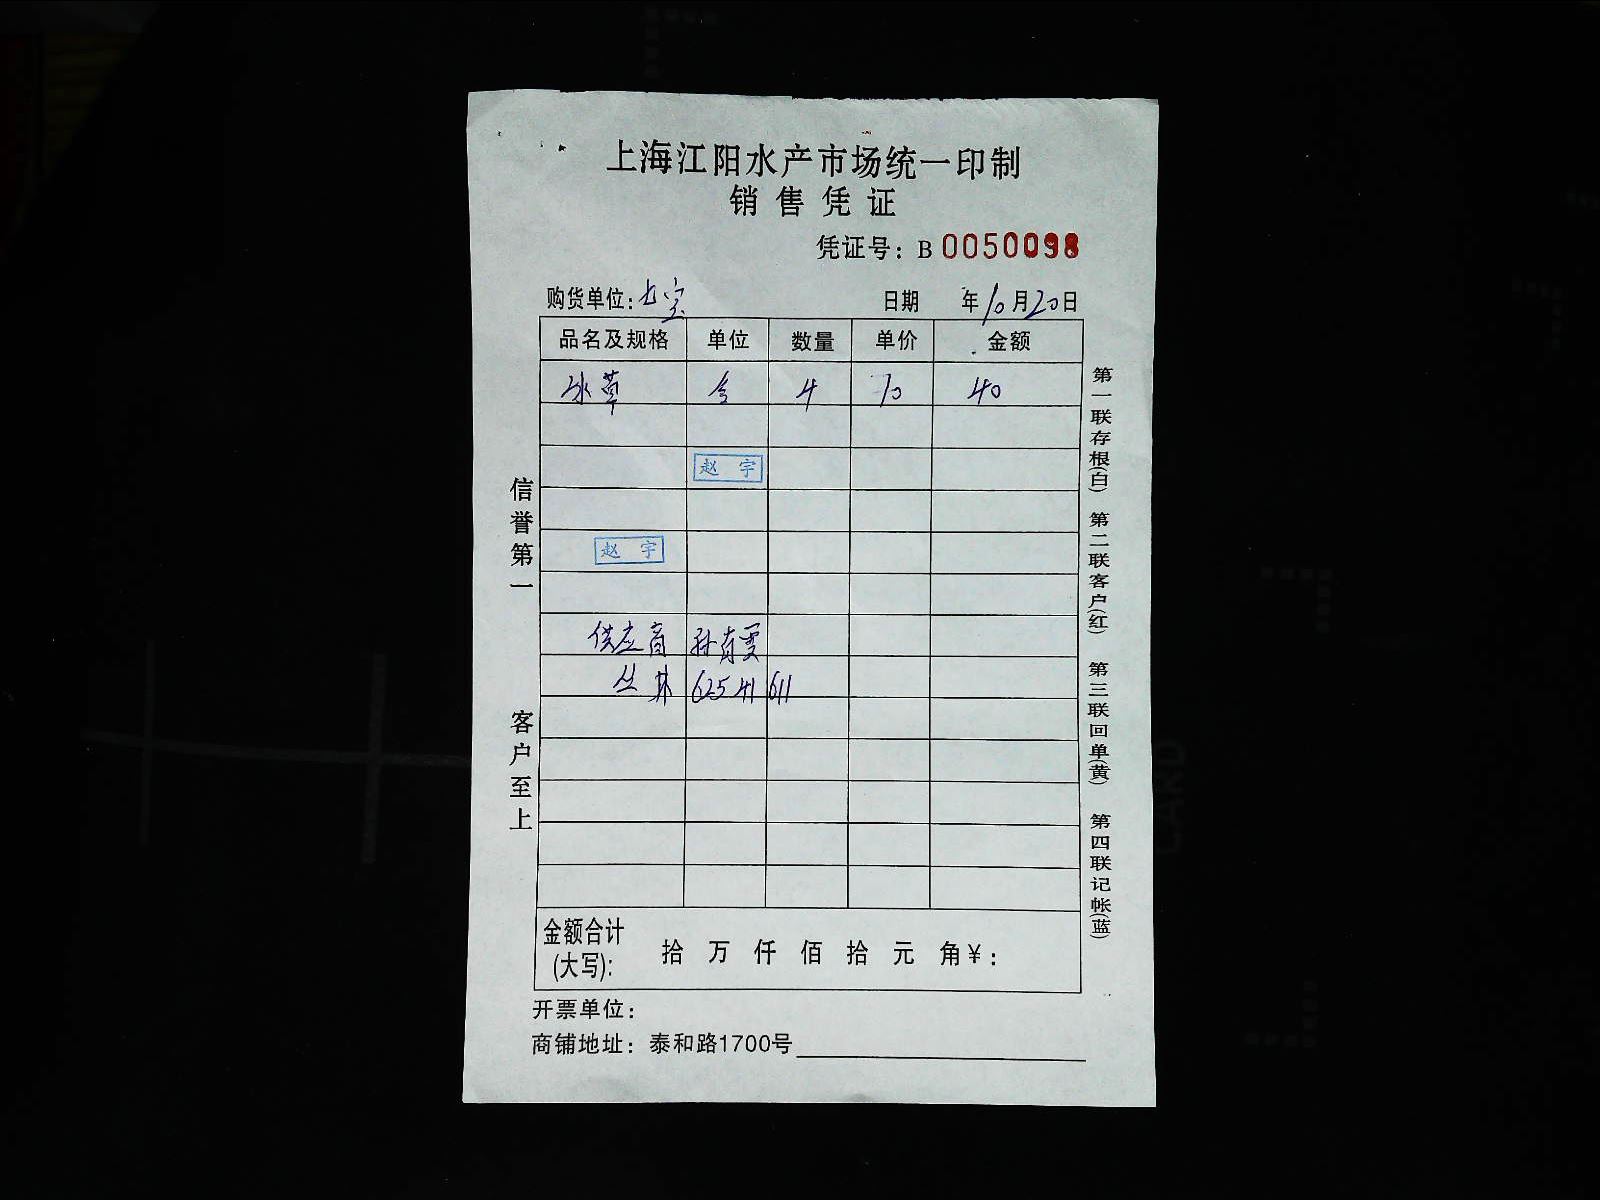 上海江阳水产市场统一印制
销售凭证
凭证号：B 0050098
购货单位：七宝 日期 年10月20日
品名及规格 单位 数量 单价 金额
冰草 4 10 40
赵宇
赵宇
供应商
丛林 62541611
金额合计(大写)： 拾 万 仟 佰 拾 元 角￥：
开票单位：
商铺地址：泰和路1700号
信誉第一 客户至上
第一联存根(白) 第二联客户(红) 第三联回单(黄) 第四联记帐(蓝)